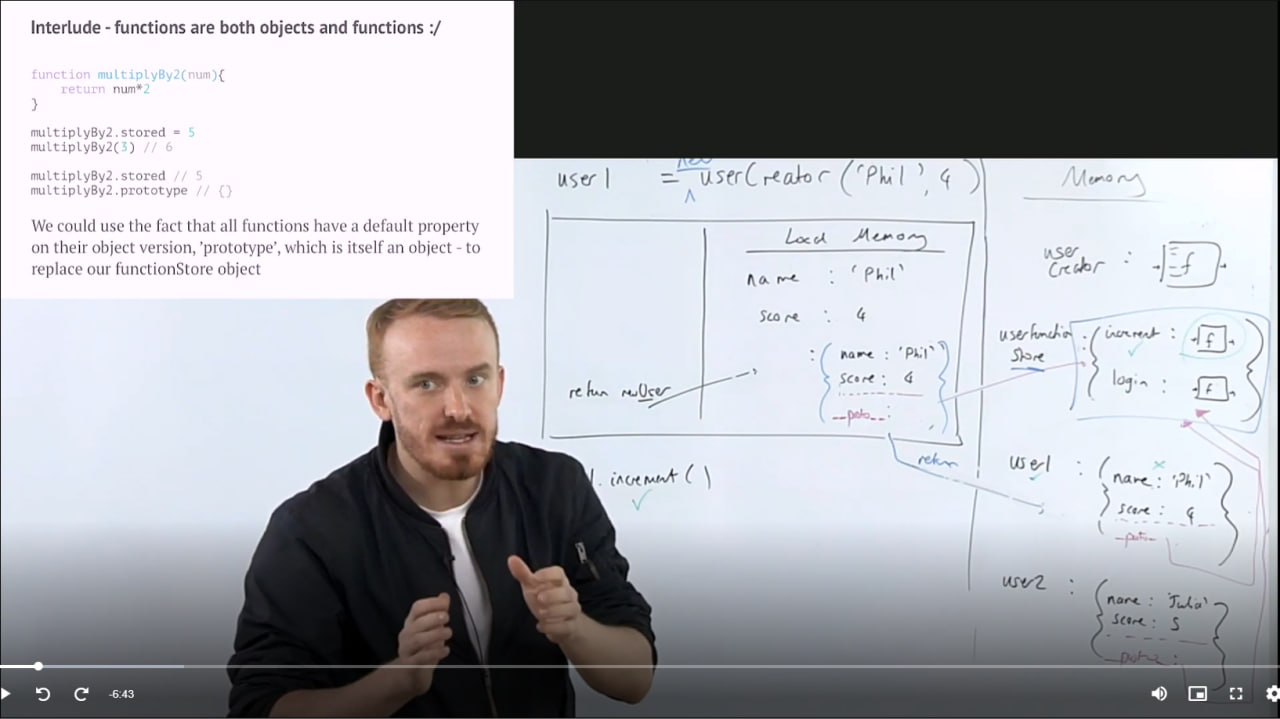 Interlude - functions are both objects and functions :/
function multiplyBy2(num){
return num*2
}
multiplyBy2.stored = 5
multiplyBy2(3) // 6
multiplyBy2.stored // 5
multiplyBy2.prototype // {}
We could use the fact that all functions have a default property
on their object version, 'prototype', which is itself an object - to
replace our functionStore object
new
user1 = userCreator ('Phil', 4)
Local Memory
name : 'Phil'
score : 4
: { name : 'Phil'
score : 4
__proto__ : }
return newUser
return
. increment ( )
Memory
user
Creator : f
userfunction
Store : { increment : f
login : f }
user1 : { name : 'Phil'
score : 4
__proto__ }
user2 : { name : 'Julia'
score : 5
__proto__ : }
-6:43